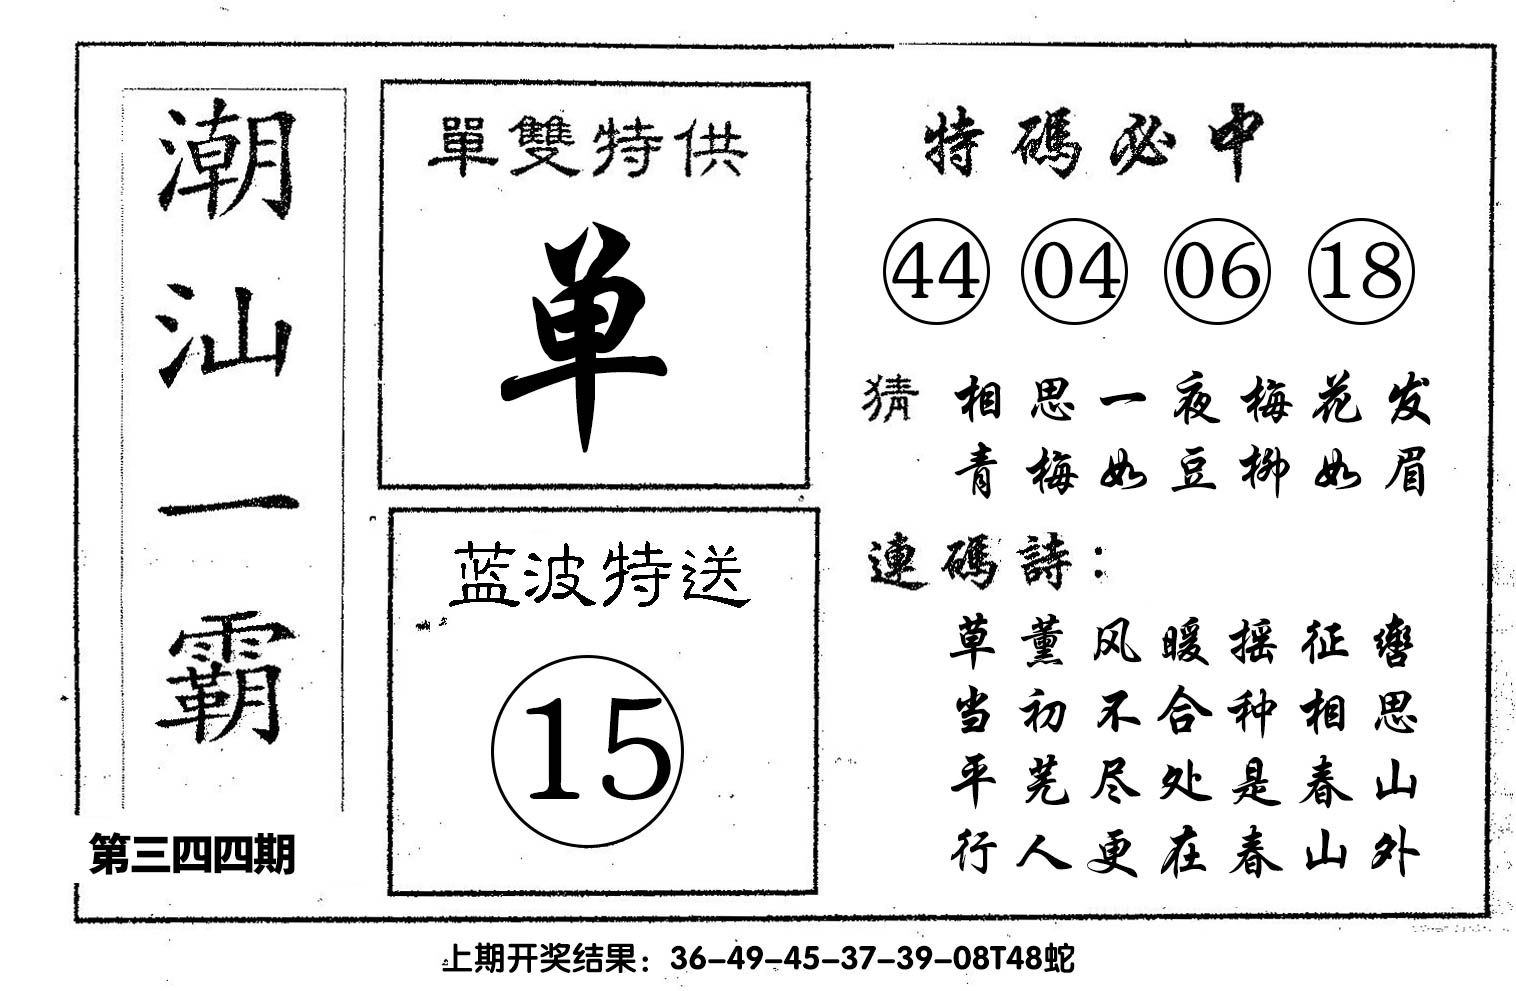 潮汕一霸
第三四四期
單雙特供
单
蓝波特送
15
特碼必中
44 04 06 18
猜 相思一夜梅花发
青梅如豆柳如眉
連碼詩：
草薰风暖摇征辔
当初不合种相思
平芜尽处是春山
行人更在春山外
上期开奖结果：36-49-45-37-39-08T48蛇